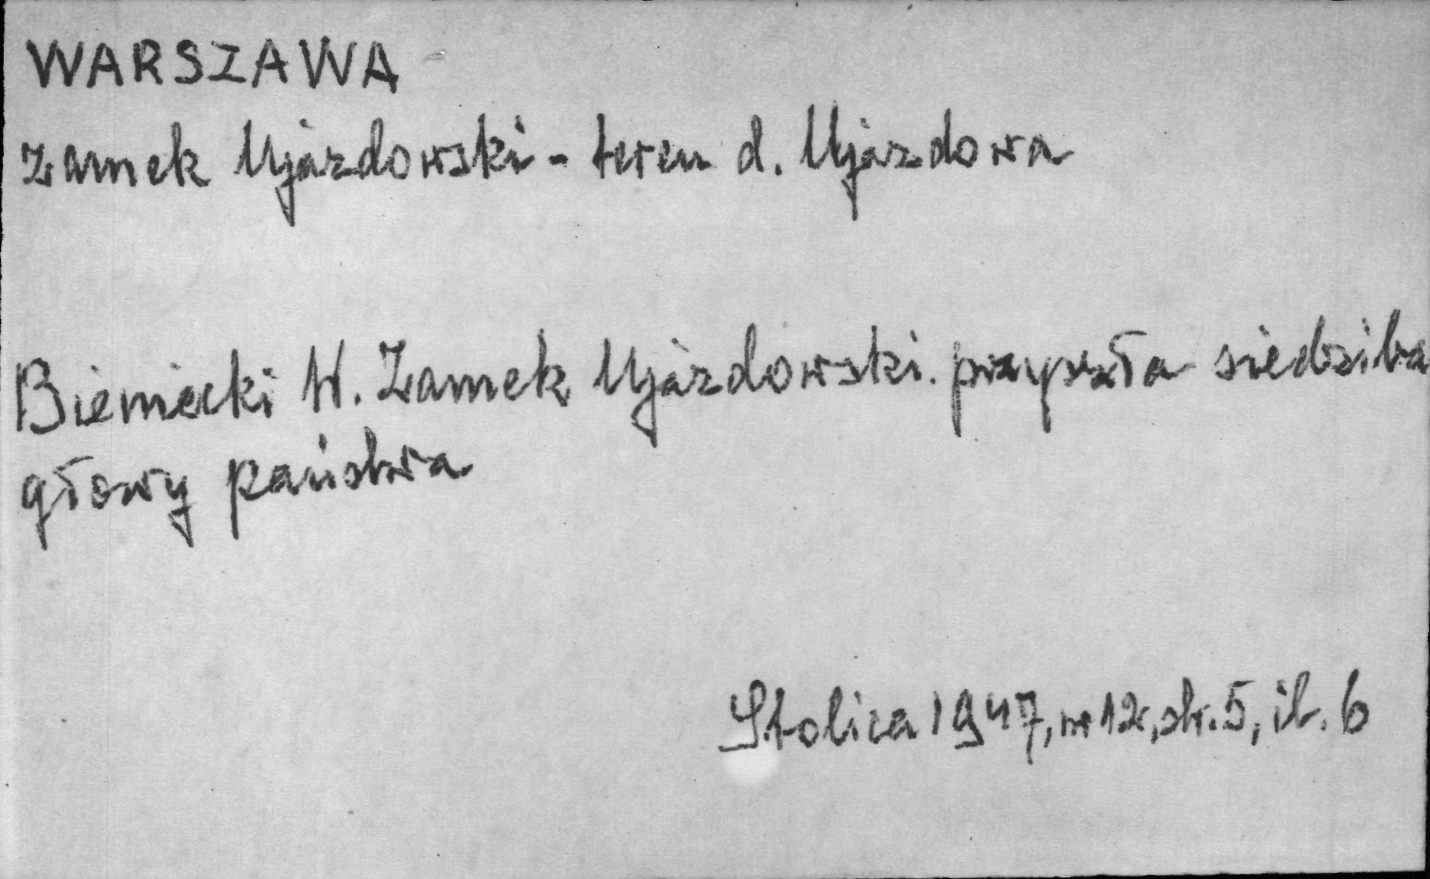 WARSZAWA
Zamek Ujazdowski - teren d. Ujazdowa
Bieniecki W. Zamek Ujazdowski. przyszła siedziba
głowy państwa
Stolica 1947, nr 12, str. 5, il. 6